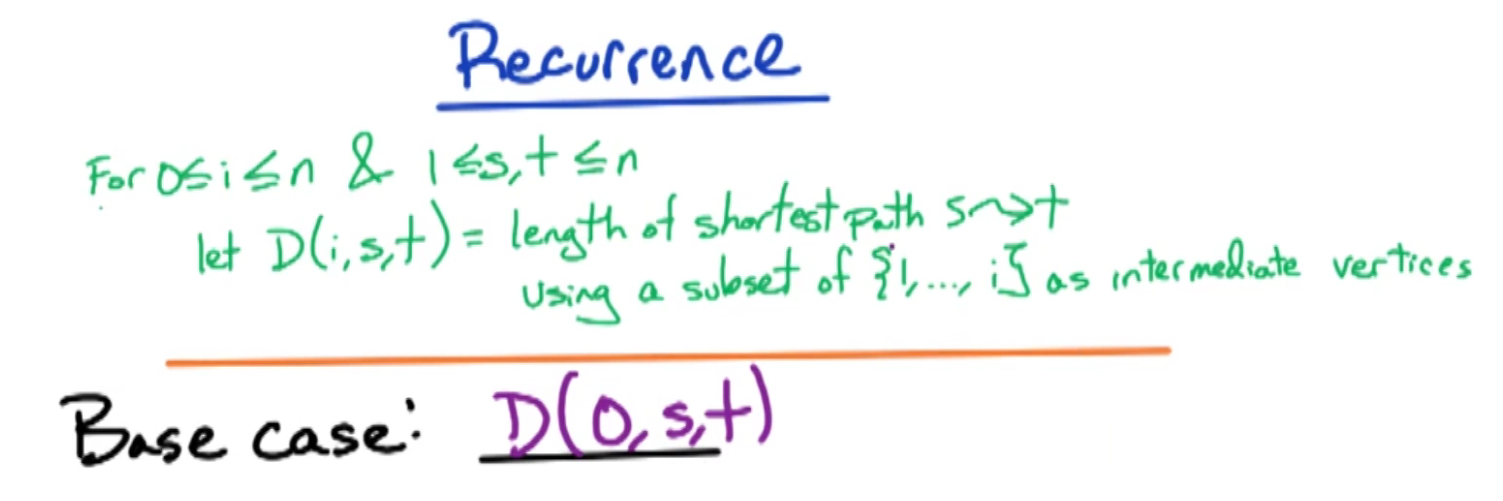 Recurrence
For 0≤i≤n & 1≤s,t≤n
let D(i,s,t) = length of shortest path s⤳t
using a subset of {1,...,i} as intermediate vertices
Base case: D(0,s,t)